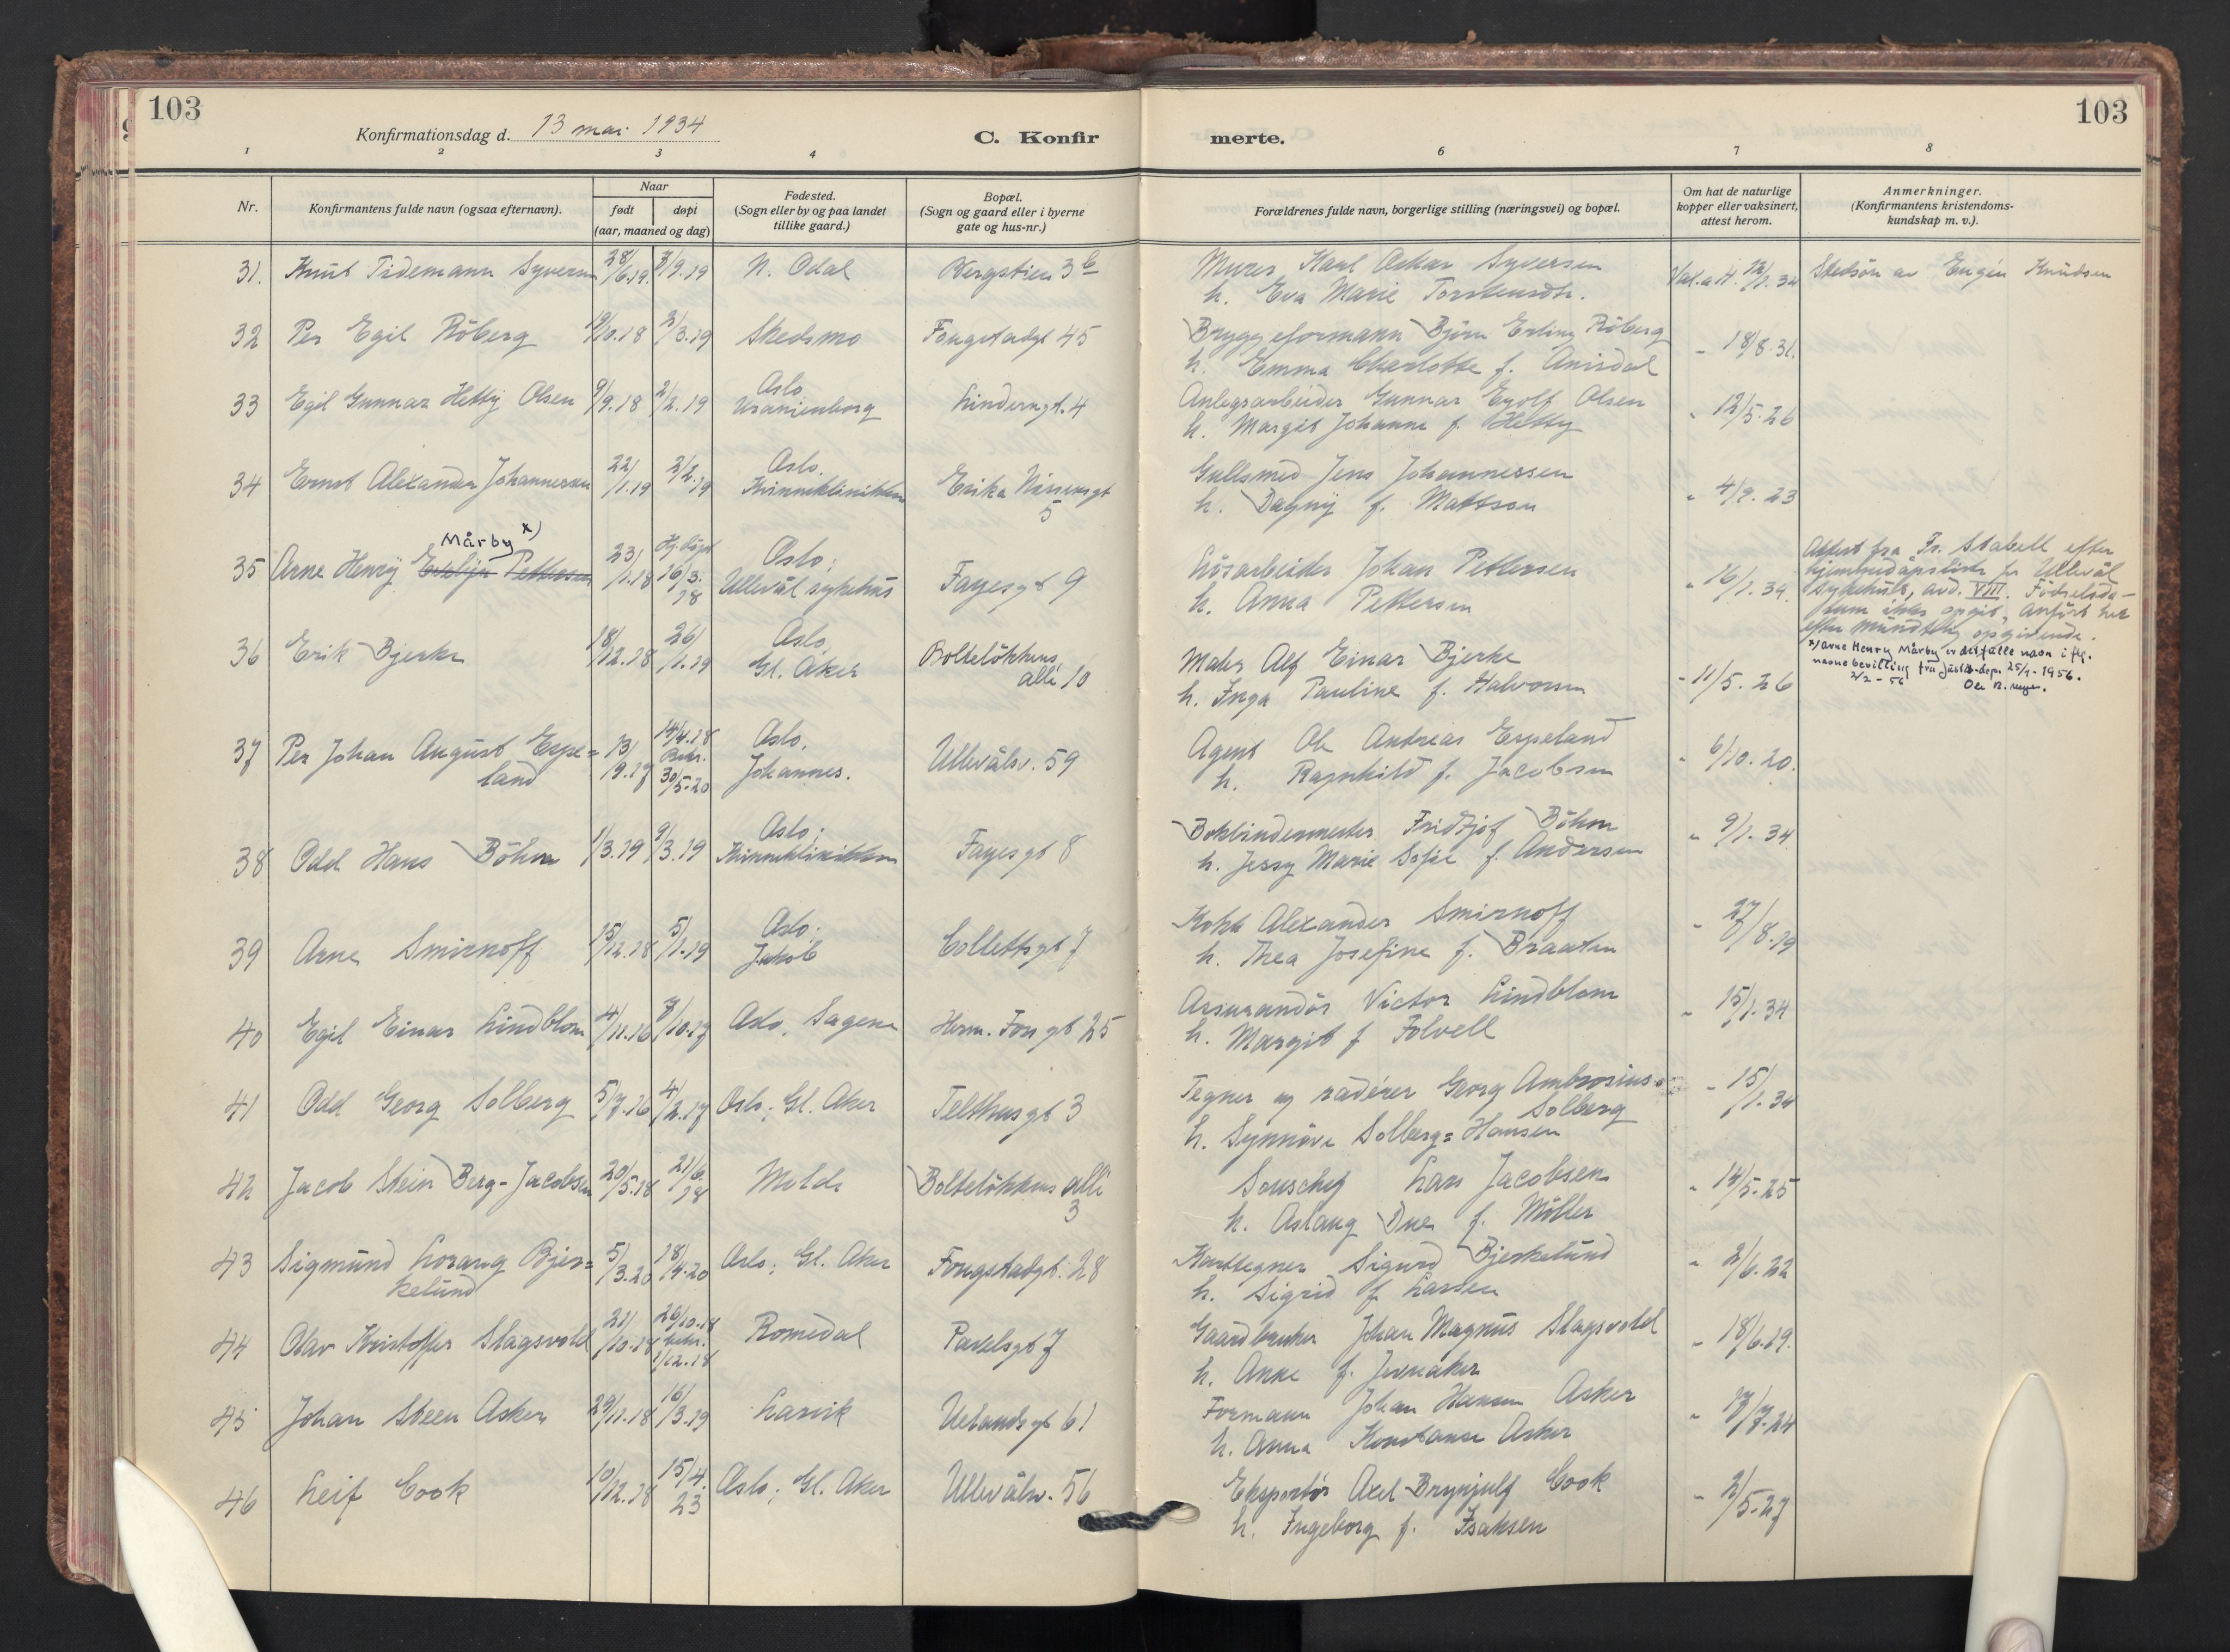 103
Konfirmationsdag d. 13 mai 1934
C. Konfir
merte.
103
1 2 3 4 6 7 8
Nr.
Konfirmantens fulde navn (ogsaa efternavn).
Naar
født døpt
(aar, maaned og dag)
Fødested.
(Sogn eller by og paa landet
tillike gaard.)
Bopæl.
(Sogn og gaard eller i byerne
gate og hus-nr.)
Forældrenes fulde navn, borgerlige stilling (næringsvei) og bopæl.
Om hat de naturlige
kopper eller vaksinert,
attest herom.
Anmerkninger.
(Konfirmantens kristendoms-
kundskap m. v.).
31. Knut Tidemann Syversen 28/6.19. 7/9.19 N. Odal Bergstien 3b Murer Karl Oskar Syversen Vak.att. 12/1.34 Stedsön av Eugen Knudsen
h. Eva Marie Torstensdtr.
32 Per Egil Röberg 19/10.18 2/3.19 Skedsmo Fougstadgt 45 Bryggeformann Björn Erling Röberg - 18/8.31.
h. Emma Charlotte f. Amisdal
33 Egil Gunnar Hetty Olsen 9/9.18 2/2.19 Oslo Uranienborg Linderngt. 4 Anlegsarbeider Gunnar Eyolf Olsen " 12/5.26
h. Margit Johanne f. Hetty
34 Ernst Alexander Johannessen 22/1.19 2/2.19 Oslo. Kvinneklinikken Erika Nissensgt 5 Gullsmed Jens Johannessen " 4/9.23
h. Dagny f. Mattson
Mårby x)
35 Arne Henry Pettersen 23/1.18 Hj.döpt 16/3.18 Oslo; Ullevål sykehus Fagesgt 9 Lösarbeider Johan Pettersen " 16/1.34.
h. Anna Pettersen
Attest fra Fr. Stabell efter
hjemmedåpsliste fr Ullevål
sykehus, avd. VIII. Födselsda-
tum ikke opgit, anfört her
efter mundtlig opgivende.
x) Arne Henry Mårby er det fulle navn iflg.
navnebevilling fra Just.-dep. 25/1-1956.
2/2-56
36 Erik Bjerke 18/12.18 26/1.19 Oslo, Gl. Aker Bolteløkkens alle 10 Maler Alf Einar Bjerke - 11/5.26
h. Inga Pauline f. Halvorsen
37 Per Johan August Espe=
land 13/9.17 14/4.18 30/5-20 Oslo, Johannes. Ullevålsv. 59 Agent Ole Andreas Espeland " 6/10.20.
h. Ragnhild f. Jacobsen
38 Odd Hans Böhm 1/3.19 9/3.19 Oslo; Kvinneklinikken Fagesgt 8 Bokbindermester Fridtjof Böhm " 9/1.34
h. Jessy Marie Sofie f. Andersen
39 Arne Smirnoff 15/12.18 5/1.19 Oslo; Jakob Collettsgt 7 Kokk Alexander Smirnoff - 27/8.19
h. Thea Josefine f. Braaten
40 Egil Einar Lindblom 4/11.16 7/10.17 Oslo, Sagene Herm. Fossgt 25 Assurandör Victor Lindblom " 15/1.34
h. Margit f Folvell
41 Odd Georg Solberg 5/7.16 4/2.17 Oslo; Gl. Aker Telthusgt 3 Tegner og raderer Georg Ambrosius - 15/1.34
Solberg
h. Synnöve Solberg=Hansen
42 Jacob Stein Berg-Jacobsen 20/5.18 21/6.18 Molde Bolteløkkens alle 3 Souschef Lars Jacobsen " 14/5.25
h. Aslaug Due f. Möller
43 Sigmund Lorang Bjer=
kelund 5/3.20 18/4.20 Oslo; Gl. Aker Fougstadgt. 28 Karttegner Sigurd Bjerkelund " 2/6.22
h. Sigrid f Larsen
44 Olav Kristoffer Slagsvold 21/10.18 26/10.18 1/12.18 Romedal Pavelsgt 7 Gaardbruker Johan Magnus Slagsvold - 18/6.19.
h. Anne f. Jevnaker
45 Johan Steen Asker 29/11.18 16/3.19 Larvik Uelandsgt 61 Formann Johan Hansen Asker " 17/7.24
h. Anna Konstanse Asker
46 Leif Cook 10/12.18 15/4.23 Oslo; Gl. Aker Ullevålsv. 56 Eksportör Axel Brynjulf Cook - 2/5.27
h. Ingeborg f. Isaksen